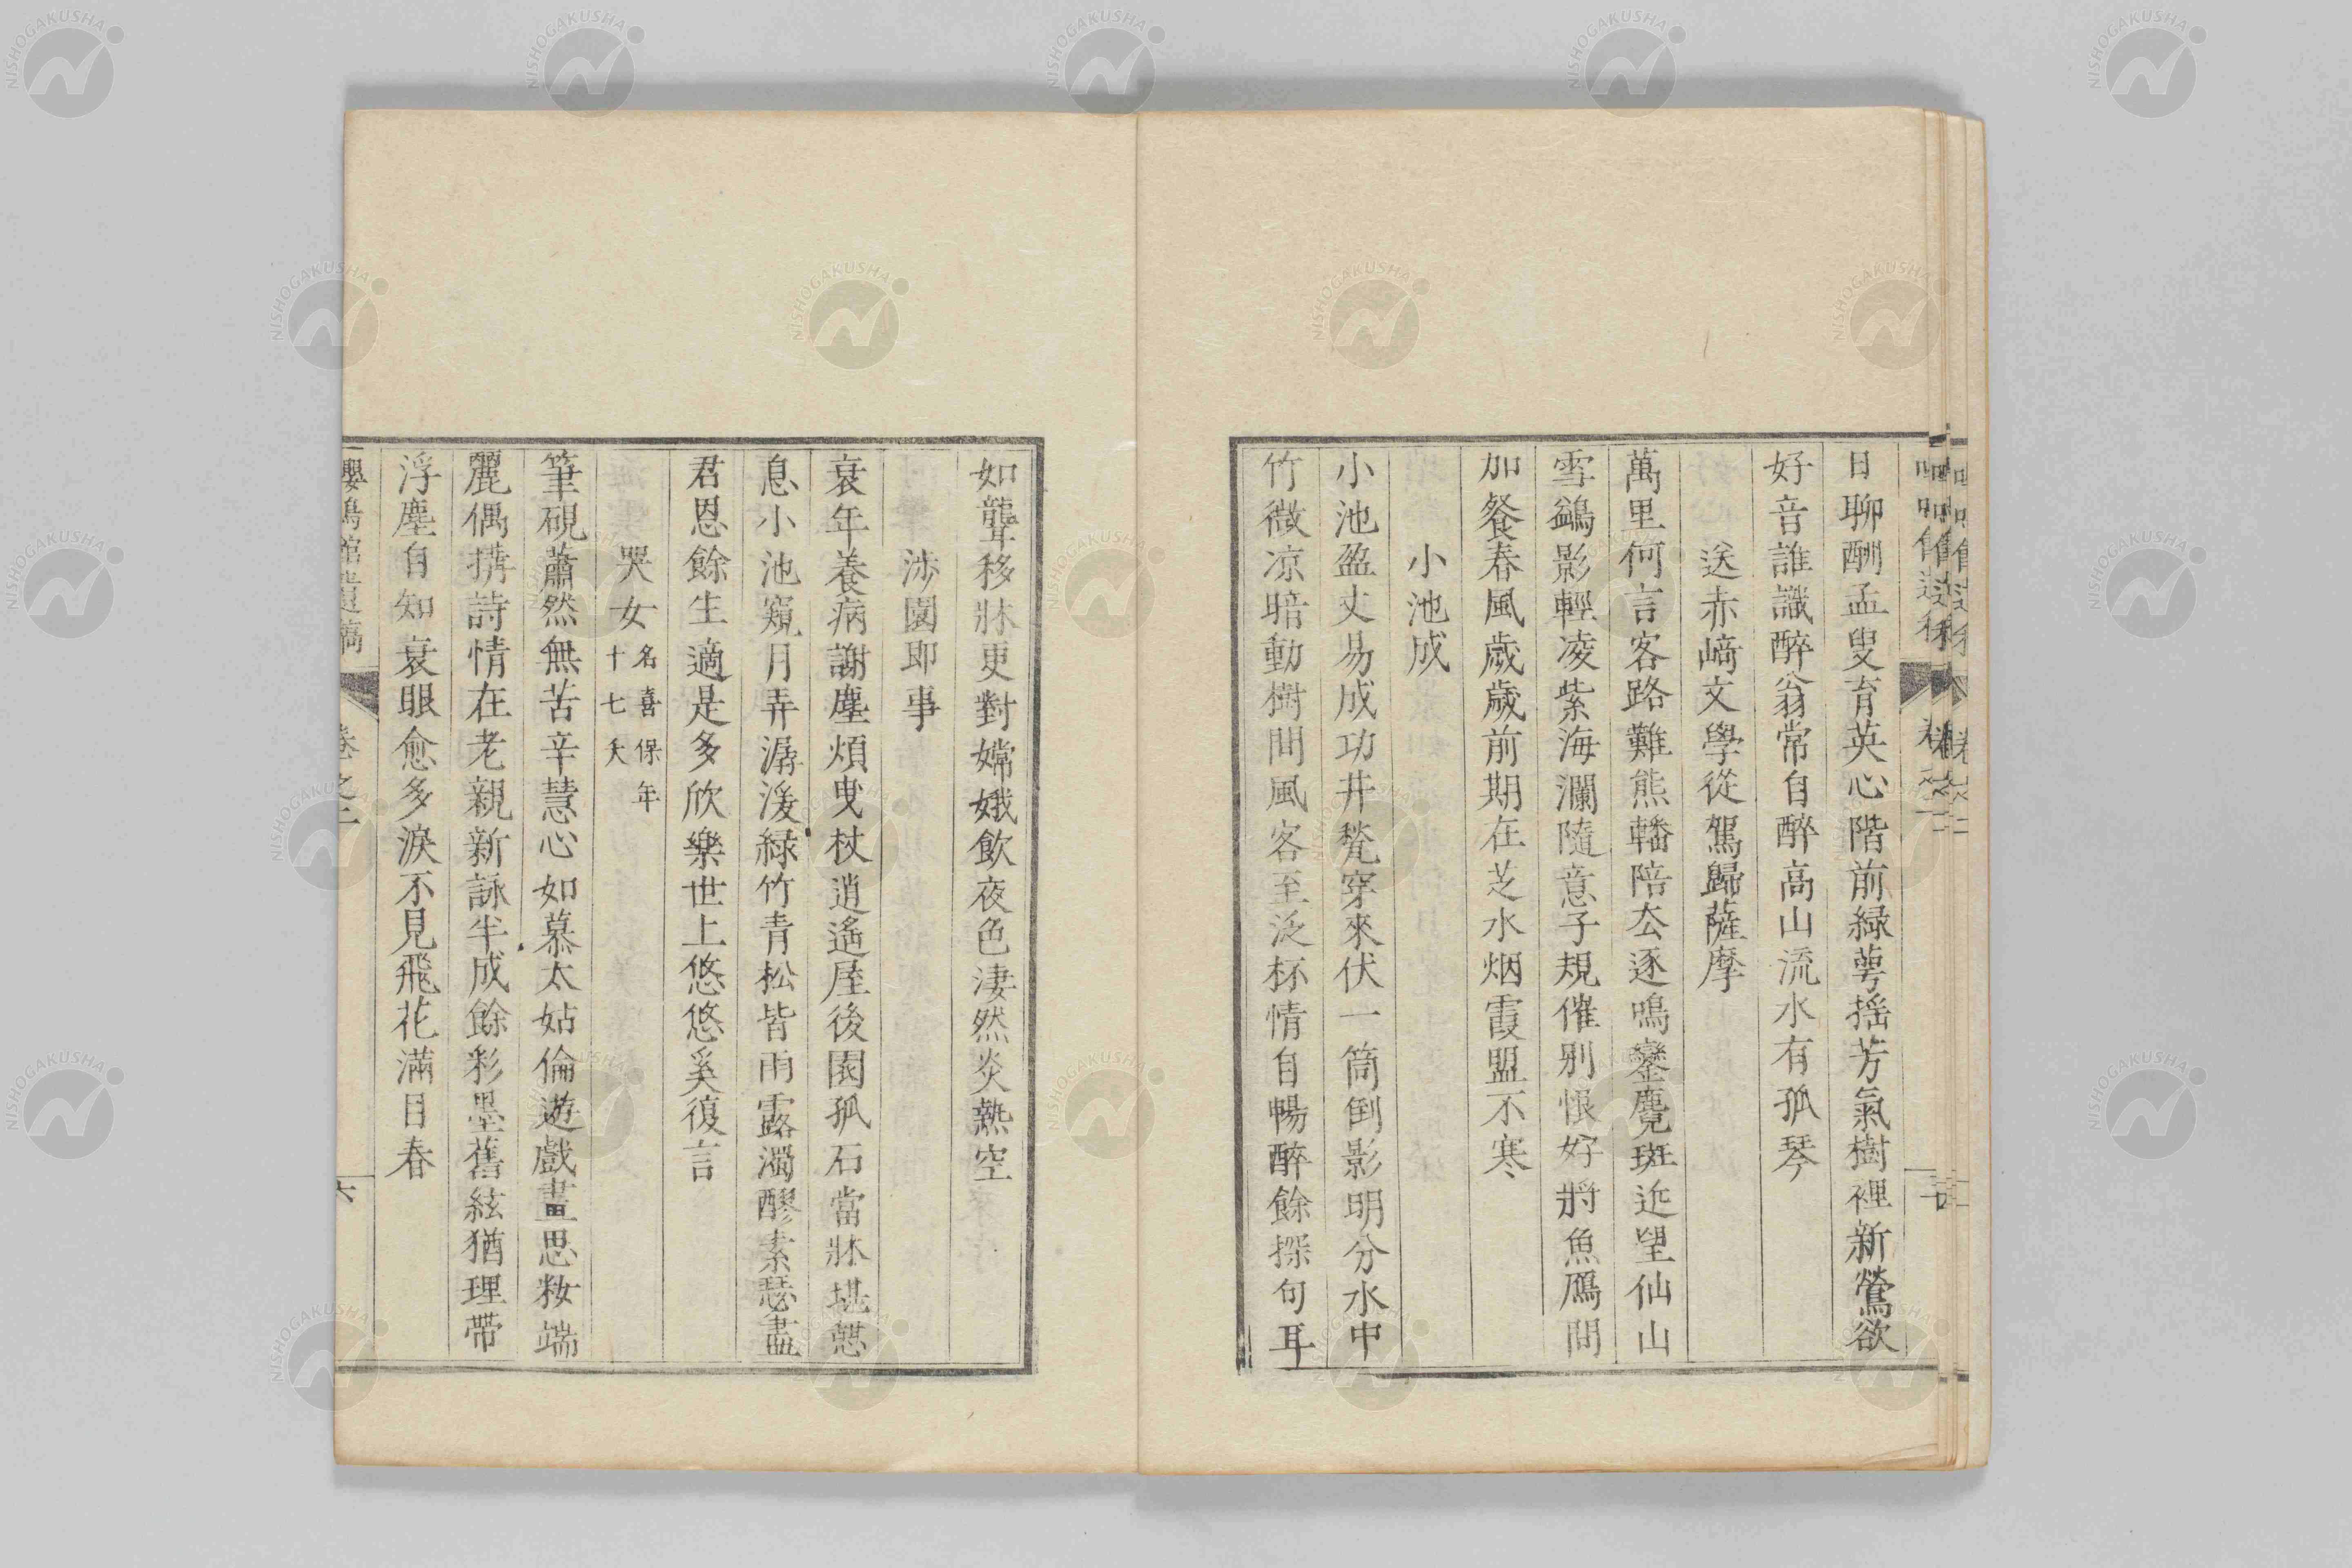 日聊酬孟叟育英心階前緑萼揺芳氣樹裡新鶯欲
好音誰識醉翁常自醉高山流水有孤琴
送赤﨑文學從駕歸薩摩
萬里何言客路難熊轓陪去逐鳴鑾麑斑近望仙山
雪鷁影輕凌紫海瀾隨意子規催別恨好將魚鴈問
加餐春風歳歳前期在芝水烟霞盟不寒
小池成
小池盈丈易成功井甃穿來伏一筒倒影明分水中
竹微凉暗動樹間風客至泛杯情自暢醉餘探句耳
如聾移牀更對嫦娥飲夜色凄然炎熱空
渉園即事
衰年養病謝塵煩曳杖逍遙屋後園孤石當牀堪憩
息小池窺月弄潺湲緑竹青松皆雨露濁醪素瑟盡
君恩餘生適是多欣樂世上悠悠奚復言
哭女名喜保年十七夭
筆硯蕭然無苦辛慧心如慕太姑倫遊戲畫思妝端
麗偶搆詩情在老親新詠半成餘彩墨舊絃猶理帶
浮塵自知衰眼愈多淚不見飛花滿目春
嚶鳴館遺稿 卷之二 六
NISHOGAKUSHA